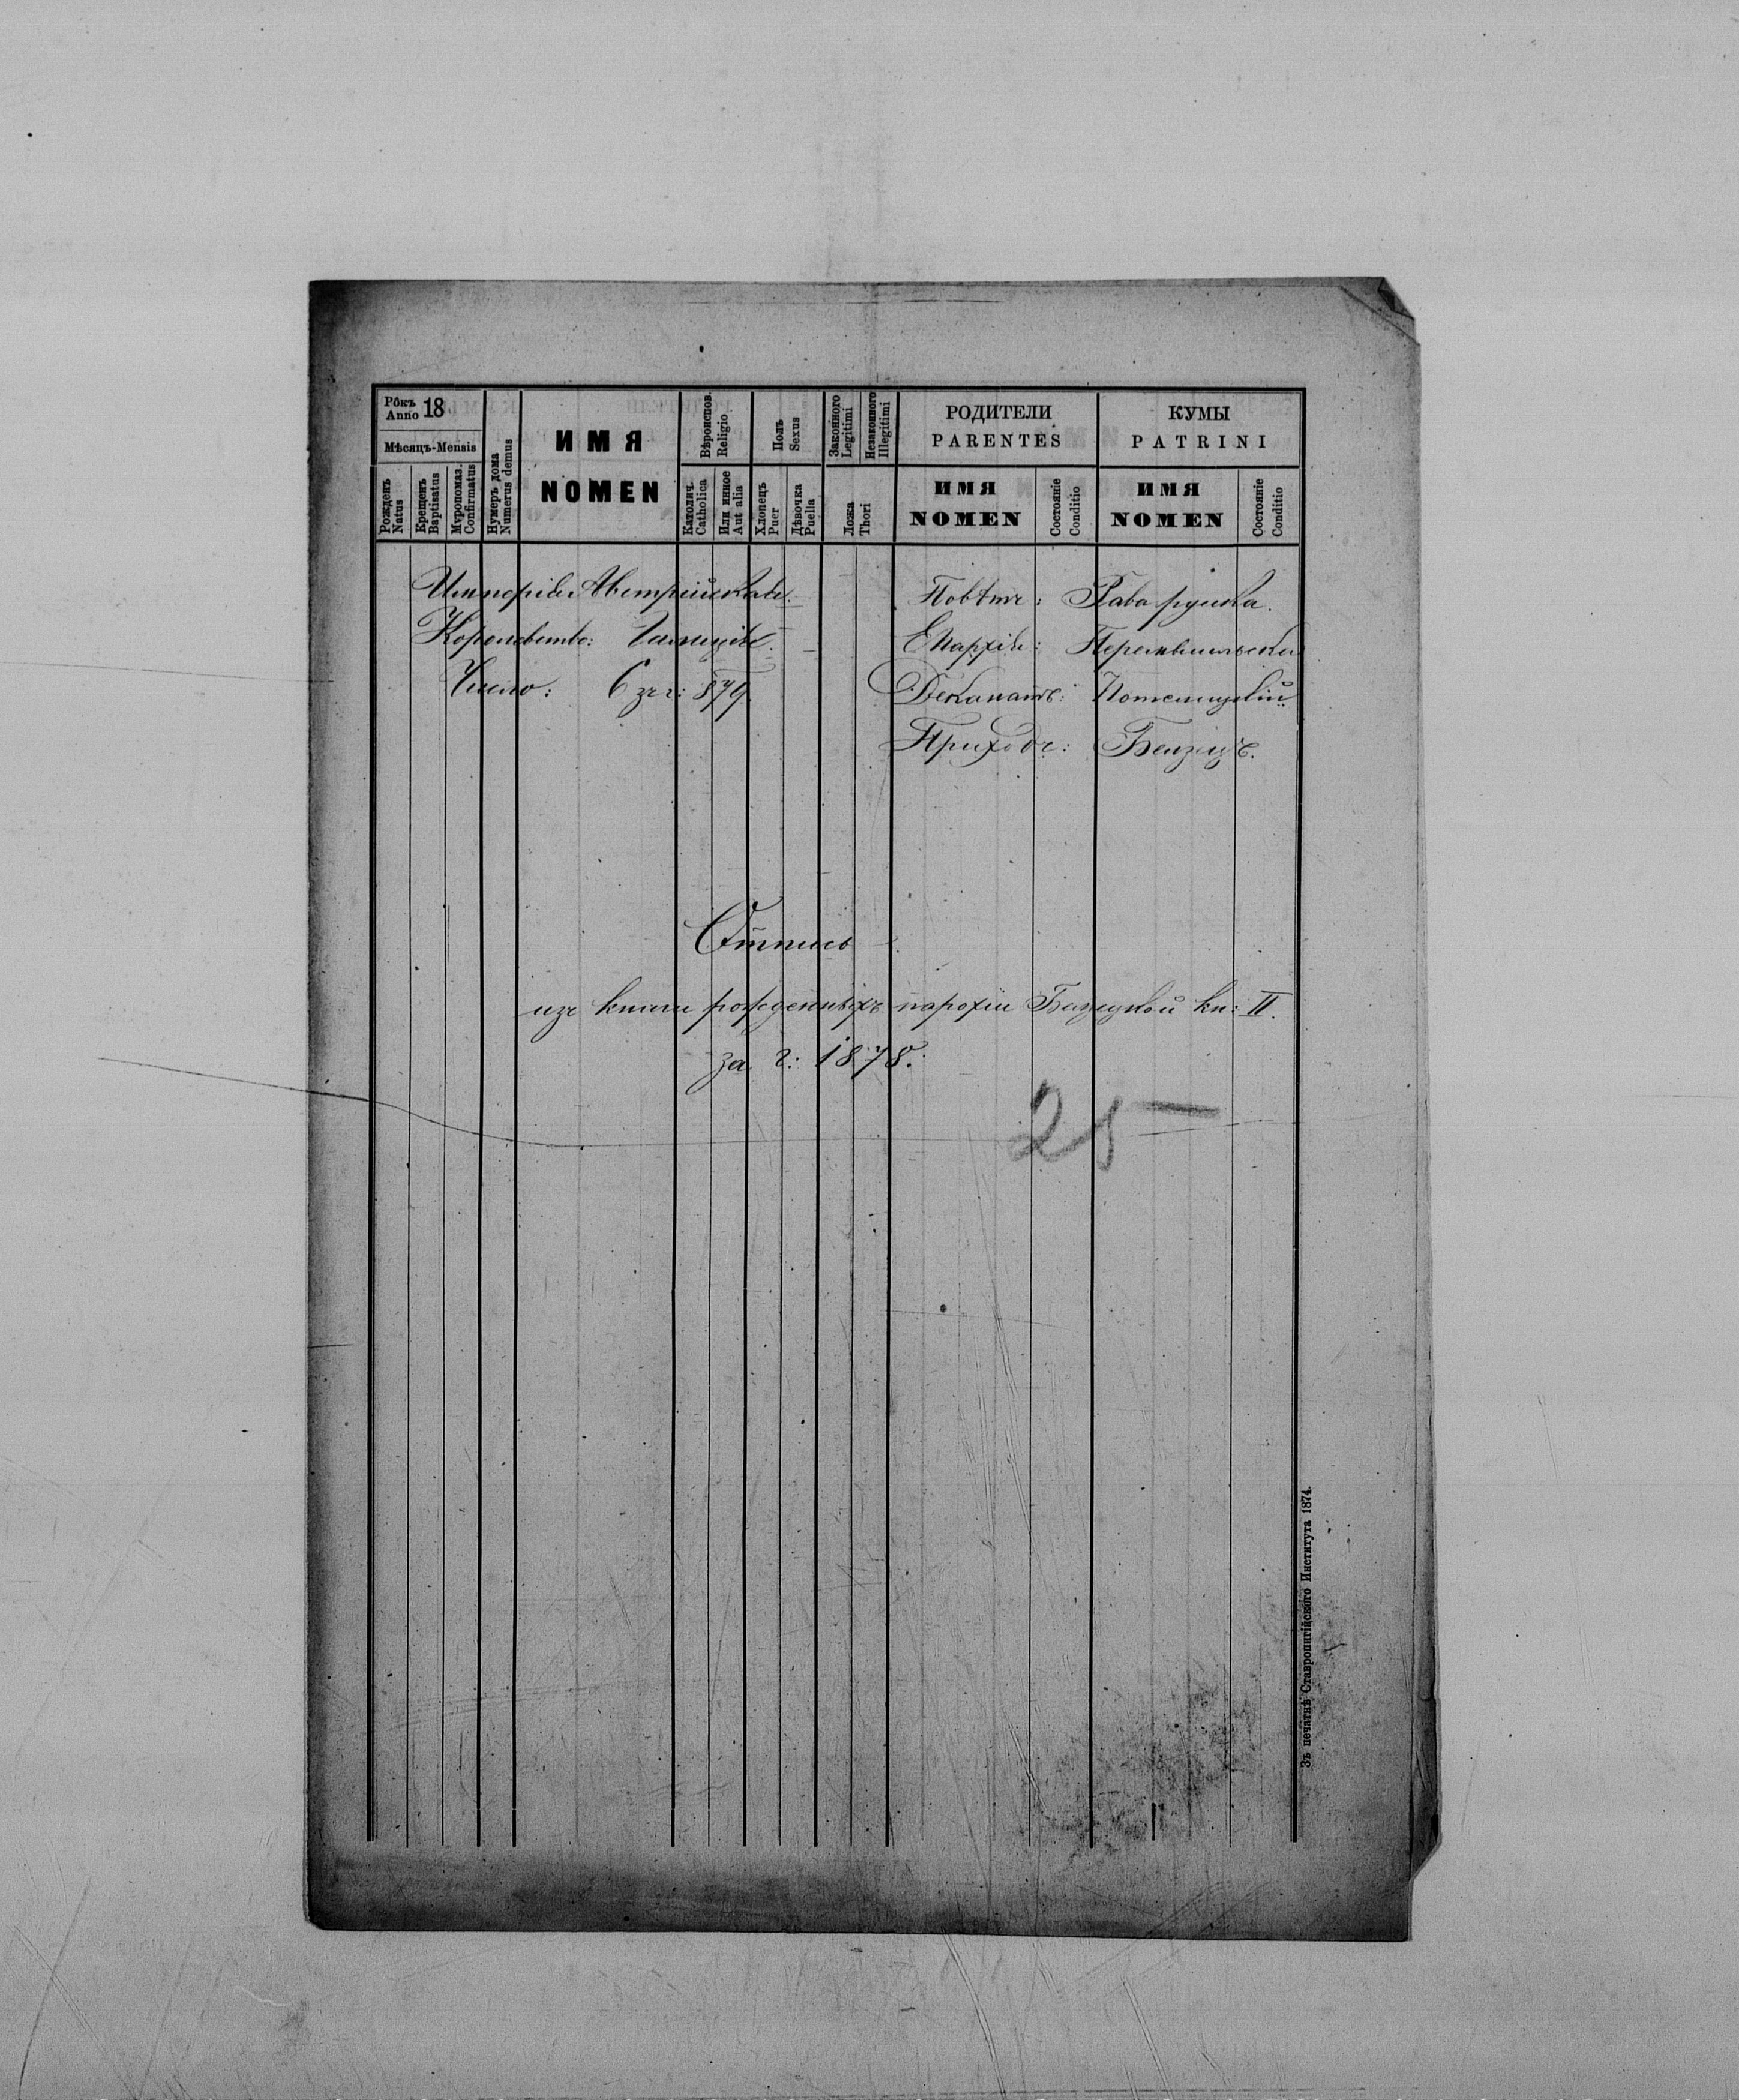 Рôкъ
Anno 18
Мѣсяцъ-Mensis
Рожденъ
Natus
Крещенъ
Baptisatus
Мѵропомаз.
Confirmatus
Нумеръ дома
Numerus demus
ИМЯ
NOMEN
Вѣроиспов.
Religio
Католич.
Catholica
Или инное
Aut alia
Полъ
Sexus
Хлопецъ
Puer
Дѣвочка
Puella
Законного
Legitimi
Незаконного
Illegitimi
Ложа
Thori
РОДИТЕЛИ
PARENTES
ИМЯ
NOMEN
Состоянiе
Conditio
КУМЫ
PATRINI
ИМЯ
NOMEN
Состоянiе
Conditio
Имперія Австрійская.
Королевство: Галиція.
Число: 6 зъ г: 879
Повѣтъ: Рава руска.
Епархія: Перемышльска
Деканатъ: Потелицкій
Приходъ: Белзецъ.
Отпись
изъ книги рожденныхъ парохіи Белзецкой кн: II.
за г: 1878.
25 —
Зъ печатнѣ Ставропигійского Института 1874.